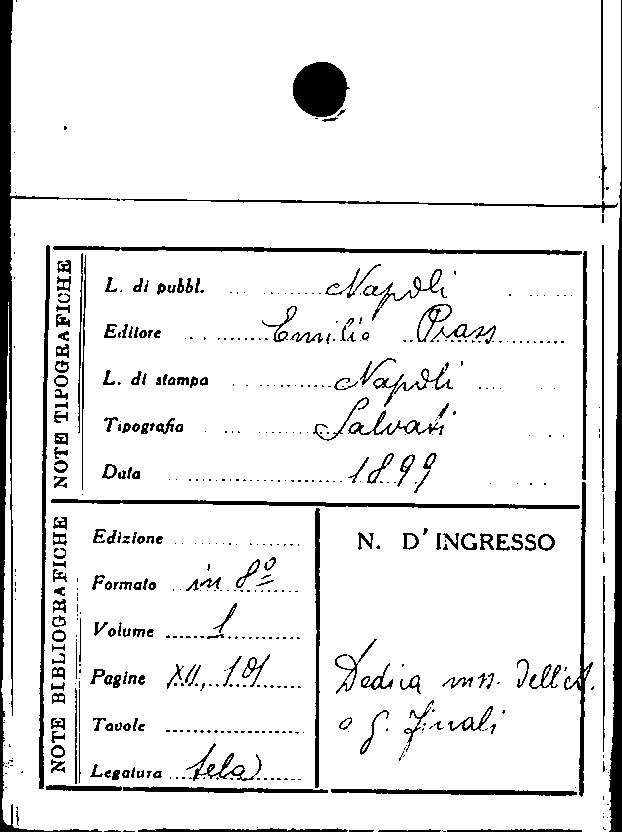 NOTE TIPOGRAFICHE
L. di pubbl. Napoli
Editore Emilio Prass
L. di stampa Napoli
Tipografia Salvati
Data 1899
NOTE BIBLIOGRAFICHE
Edizione
Formato in 8º
Volume 1
Pagine XII, 101
Tavole
Legatura tela
N. D'INGRESSO
Dedica mss. dell'
a G. Finali